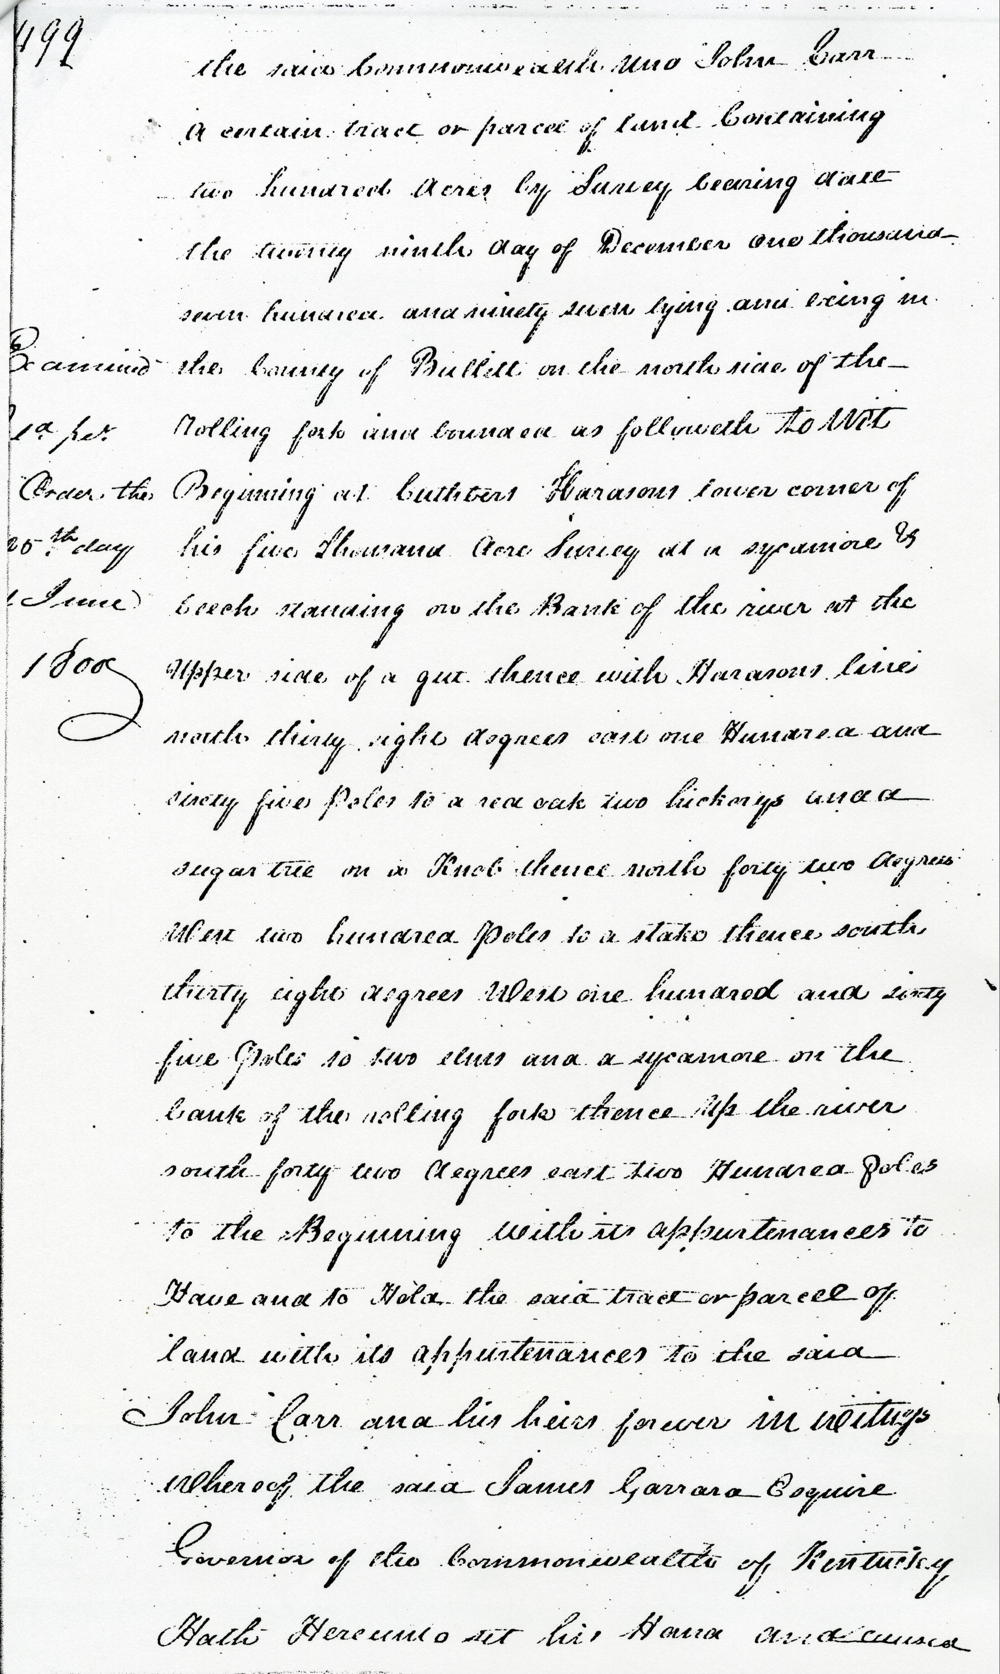 499
the said Commonwealth unto John Carr
A certain tract or parcel of land Containing
two hundred Acres by Survey bearing date
the twenty ninth day of December one thousand
seven hundred and ninety seven lying and being in
the County of Bullitt on the north side of the
Rolling fork and bounded as followeth to Wit
Beginning at Cuthbert Harasons lower corner of
his five Thousand Acre Survey at a sycamore &
beech standing on the Bank of the river at the
Upper side of a gut thence with Harasons line
north thirty eight degrees east one Hundred and
sixty five Poles to a red oak two hickorys and a
sugar tree on a Knob thence north forty two degrees
West two hundred Poles to a stake thence south
thirty eight degrees West one hundred and sixty
five Poles to two elms and a sycamore on the
bank of the rolling fork thence Up the river
south forty two degrees east two Hundred Poles
to the Beginning with its appurtenances to
Have and to Hold the said tract or parcel of
land with its appurtenances to the said
John Carr and his heirs forever in witness
whereof the said James Garrard Esquire
Governor of the Commonwealth of Kentucky
Hath Hereunto set his Hand and caused
Examined
Order the
25th day
June
1800